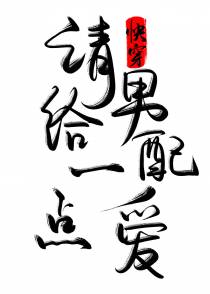 快穿
请给一点
男配爱